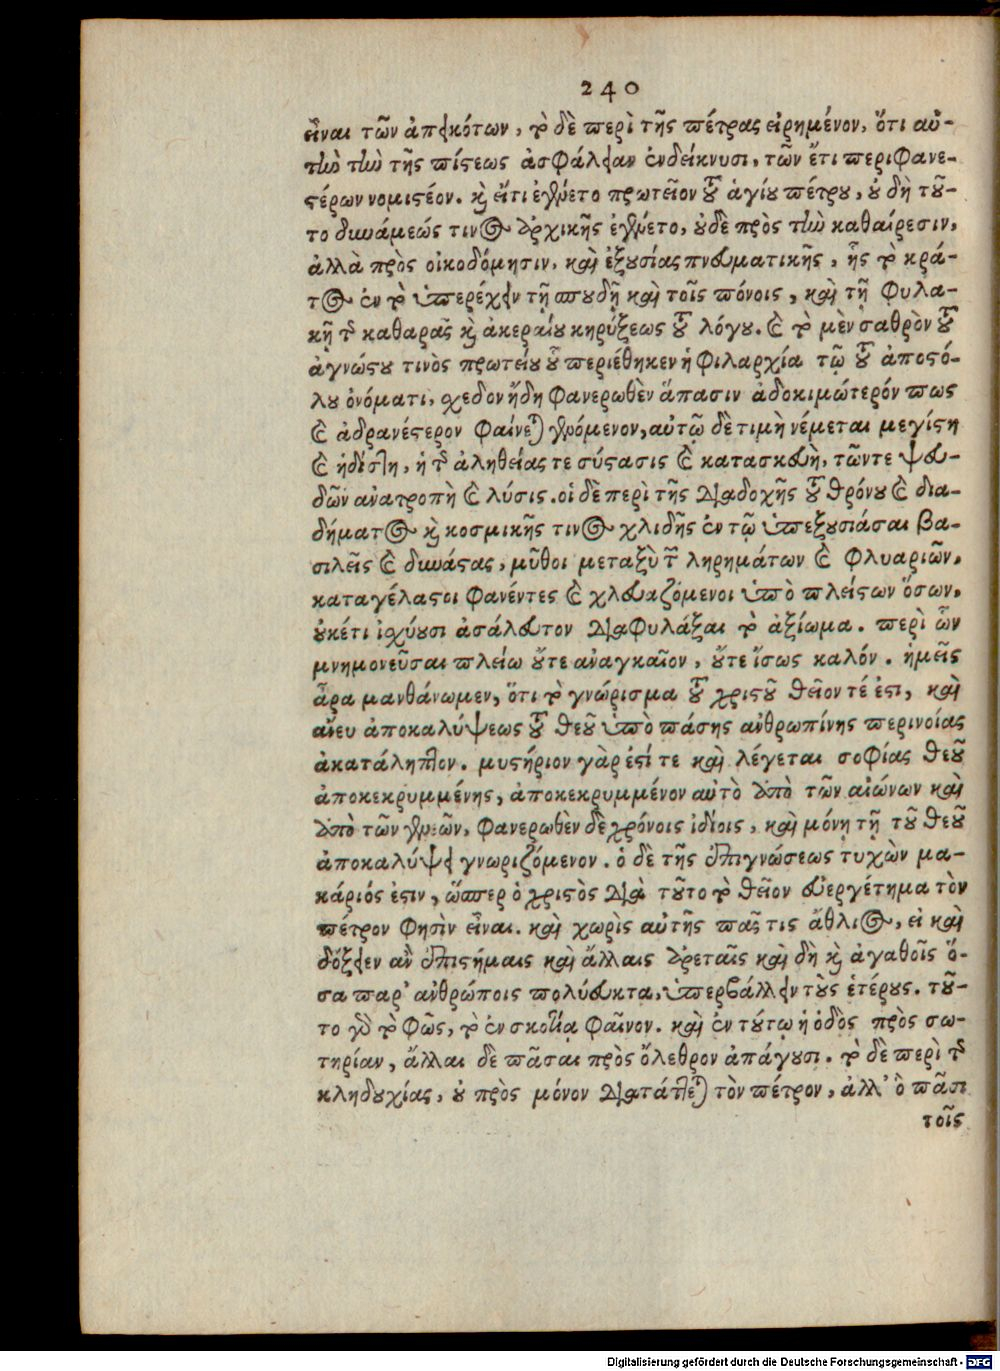 240
εἶναι τῶν ἀπεικότων, τὸ δὲ περὶ τῆς πέτρας εἰρημένον, ὅτι αὐ-
τὴν τὴν τῆς πίστεως ἀσφάλειαν ἐνδείκνυσι, τῶν ἔτι περιφανε-
στέρων νομιστέον. καὶ εἴτι ἐγένετο πρωτεῖον τοῦ ἁγίου πέτρου, οὐ δὴ τοῦ-
το δυνάμεώς τινος ἀρχικῆς ἐγένετο, οὐδὲ πρὸς τὴν καθαίρεσιν,
ἀλλὰ πρὸς οἰκοδόμησιν, καὶ ἐξουσίας πνευματικῆς, ἧς τὸ κρά-
τος ἐν τὸ ὑπερέχειν τῇ σπουδῇ καὶ τοῖς πόνοις, καὶ τῇ φυλα-
κῇ τῆς καθαρᾶς καὶ ἀκεραίου κηρύξεως τοῦ λόγου. καὶ τὸ μὲν σαθρὸν τοῦ
ἀγνώστου τινὸς πρωτείου οὗ περιέθηκεν ἡ φιλαρχία τῷ τοῦ ἀποστό-
λου ὀνόματι, σχεδὸν ἤδη φανερωθὲν ἅπασιν ἀδοκιμώτερόν πως
καὶ ἀδρανέστερον φαίνεται γενόμενον, αὐτῷ δὲ τιμὴ νέμεται μεγίστη
καὶ ἡδίστη, ἡ τῆς ἀληθείας τε σύστασις καὶ κατασκευὴ, τῶν τε ψευ-
δῶν ἀνατροπὴ καὶ λύσις. οἱ δὲ περὶ τῆς διαδοχῆς τοῦ θρόνου καὶ δια-
δήματος καὶ κοσμικῆς τινος χλιδῆς ἐν τῷ ὑπεξουσιάσαι βα-
σιλεῖς καὶ δυνάστας, μῦθοι μεταξὺ τῶν ληρημάτων καὶ φλυαριῶν,
καταγέλαστοι φανέντες καὶ χλευαζόμενοι ὑπὸ πλείστων ὅσων,
οὐκέτι ἰσχύουσι ἀσάλευτον διαφυλάξαι τὸ ἀξίωμα. περὶ ὧν
μνημονεῦσαι πλείω οὔτε ἀναγκαῖον, οὔτε ἴσως καλόν. ἡμεῖς
ἆρα μανθάνωμεν, ὅτι τὸ γνώρισμα τοῦ χριστοῦ θεῖον τέ ἐστι, καὶ
ἄνευ ἀποκαλύψεως τοῦ θεοῦ ὑπὸ πάσης ἀνθρωπίνης περινοίας
ἀκατάληπτον. μυστήριον γὰρ ἐστί τε καὶ λέγεται σοφίας θεοῦ
ἀποκεκρυμμένης, ἀποκεκρυμμένον αὐτὸ ἀπὸ τῶν αἰώνων καὶ
ἀπὸ τῶν γενεῶν, φανερωθὲν δὲ χρόνοις ἰδίοις, καὶ μόνῃ τῇ τοῦ θεοῦ
ἀποκαλύψει γνωριζόμενον. ὁ δὲ τῆς ἐπιγνώσεως τυχὼν μα-
κάριός ἐστιν, ὥσπερ ὁ χριστὸς διὰ τοῦτο τὸ θεῖον εὐεργέτημα τὸν
πέτρον φησὶν εἶναι. καὶ χωρὶς αὐτῆς πᾶς τις ἄθλιος, εἰ καὶ
δόξειεν ἂν ἐπιστήμαις καὶ ἄλλαις ἀρεταῖς καὶ δὴ καὶ ἀγαθοῖς ὅ-
σα παρ’ ἀνθρώποις πολύευκτα, ὑπερβάλλειν τοὺς ἑτέρους. τοῦ-
το γὰρ τὸ φῶς, τὸ ἐν σκοτίᾳ φαῖνον. καὶ ἐν τούτῳ ἡ ὁδὸς πρὸς σω-
τηρίαν, ἄλλαι δὲ πᾶσαι πρὸς ὄλεθρον ἀπάγουσι. τὸ δὲ περὶ τῆς
κληδουχίας, οὐ πρὸς μόνον διατάττεται τὸν πέτρον, ἀλλ’ ὃ πᾶσι
τοῖς
Digitalisierung gefördert durch die Deutsche Forschungsgemeinschaft - DFG